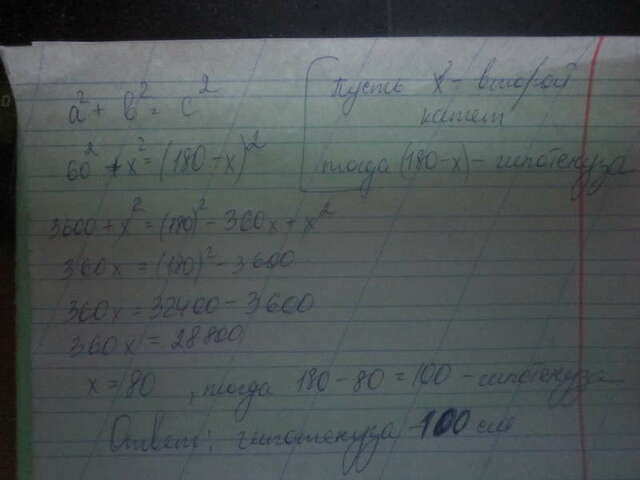 a² + b² = c²
Пусть x - второй
катет
60² + x² = (180-x)²
тогда (180-x) - гипотенуза
3600 + x² = (180)² - 360x + x²
360x = (180)² - 3600
360x = 32400 - 3600
360x = 28800
x = 80 , тогда 180 - 80 = 100 - гипотенуза
Ответ: гипотенуза 100 см